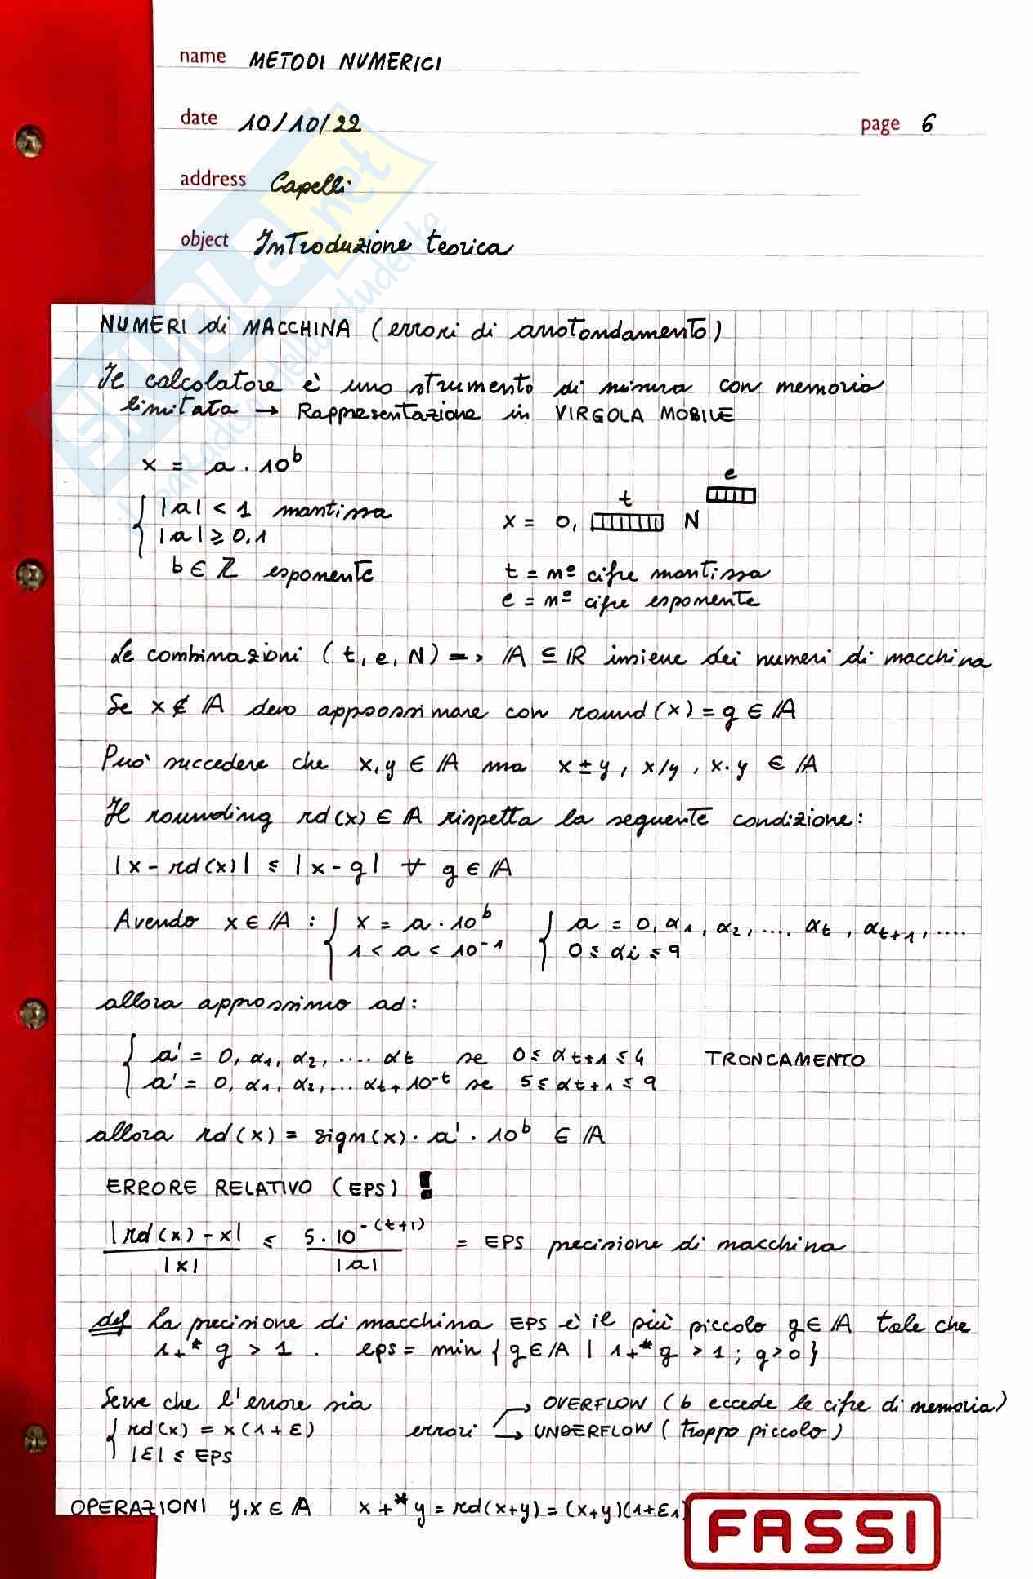 name METODI NUMERICI
date 10/10/22 page 6
address Capelli
object Introduzione teorica
NUMERI di MACCHINA (errori di arrotondamento)
Il calcolatore è uno strumento di misura con memoria
limitata → Rappresentazione in VIRGOLA MOBILE
x = a · 10^b
e
{ |a| < 1 mantissa
t
x = 0, N
|a| ≥ 0,1
b ∈ ℤ esponente t = nº cifre mantissa
e = nº cifre esponente
Le combinazioni (t, e, N) => /A ⊆ ℝ insieme dei numeri di macchina
Se x ∉ /A devo approssimare con round(x) = g ∈ /A
Può succedere che x,y ∈ /A ma x ± y, x/y, x·y ∈ /A
Il rounding rd(x) ∈ /A rispetta la seguente condizione:
|x - rd(x)| ≤ |x - g| ∀ g ∈ /A
Avendo x ∈ /A : { x = a · 10^b { a = 0, α1, α2, ..., αt, αt+1, ....
1 < a < 10^-1 0 ≤ αi ≤ 9
allora approssimo ad:
{ a' = 0, α1, α2, .... αt se 0 ≤ αt+1 ≤ 4 TRONCAMENTO
a' = 0, α1, α2, ... αt + 10^-t se 5 ≤ αt+1 ≤ 9
allora rd(x) = sign(x) · a' · 10^b ∈ /A
ERRORE RELATIVO (EPS) !
|rd(x) - x| / |x| ≤ 5 · 10^-(t+1) / |a| = EPS precisione di macchina
def La precisione di macchina EPS è il più piccolo g ∈ /A tale che
1 +* g > 1 . eps = min { g ∈ /A | 1 +* g > 1 ; g > 0 }
Serve che l'errore sia → OVERFLOW (b eccede le cifre di memoria)
{ rd(x) = x(1 + ε) errori → UNDERFLOW (troppo piccolo)
|ε| ≤ EPS
OPERAZIONI y,x ∈ /A x +* y = rd(x+y) = (x+y)(1+ε1)
FASSI